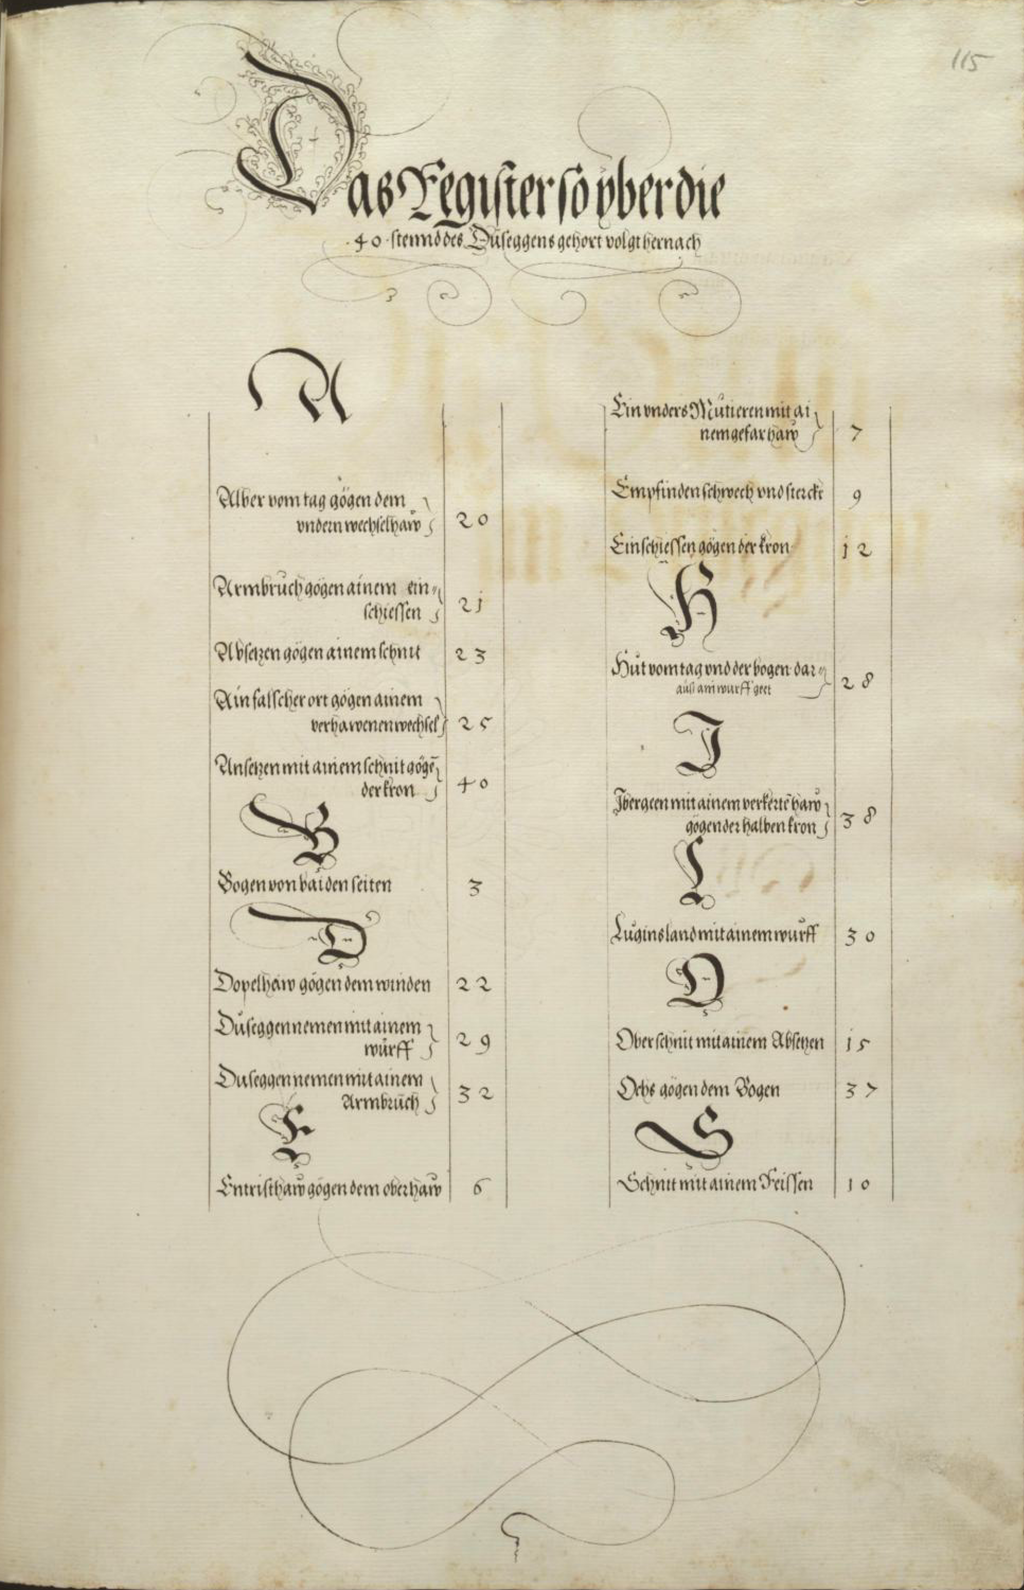 115
Das Register so yber die
· 40 · stennd des Duseggens gehort volgt hernach
A
Alber vom tag gögen dem
vndern wechselhaw
20
Armbruch gögen ainem ein-
schiessen
21
Absetzen gögen ainem schnit
23
Ain falscher ort gögen ainem
verhawenen wechsel
25
Ansetzen mit ainem schnit gögē
der kron
40
B
Bogen von baiden seiten
3
D
Dopelhaw gögen dem winden
22
Duseggen nemen mit ainem
wurff
29
Duseggen nemen mit ainem
Armbruch
32
E
Entristhaw gögen dem oberhaw
6
Ein vnders Mutieren mit ai
nem gefar haw
7
Empfinden schwech vnd sterckt
9
Einschiessen gögen der kron
12
H
Hut vom tag vnd der bogen dar-
auß ain wurff geet
28
J
Jbergeen mit ainem verkertē haw
gögen der halben kron
38
L
Luginsland mit ainem wurff
30
O
Oberschnit mit ainem Absetzen
15
Ochs gögen dem Bogen
37
S
Schnit mit ainem Reissen
10